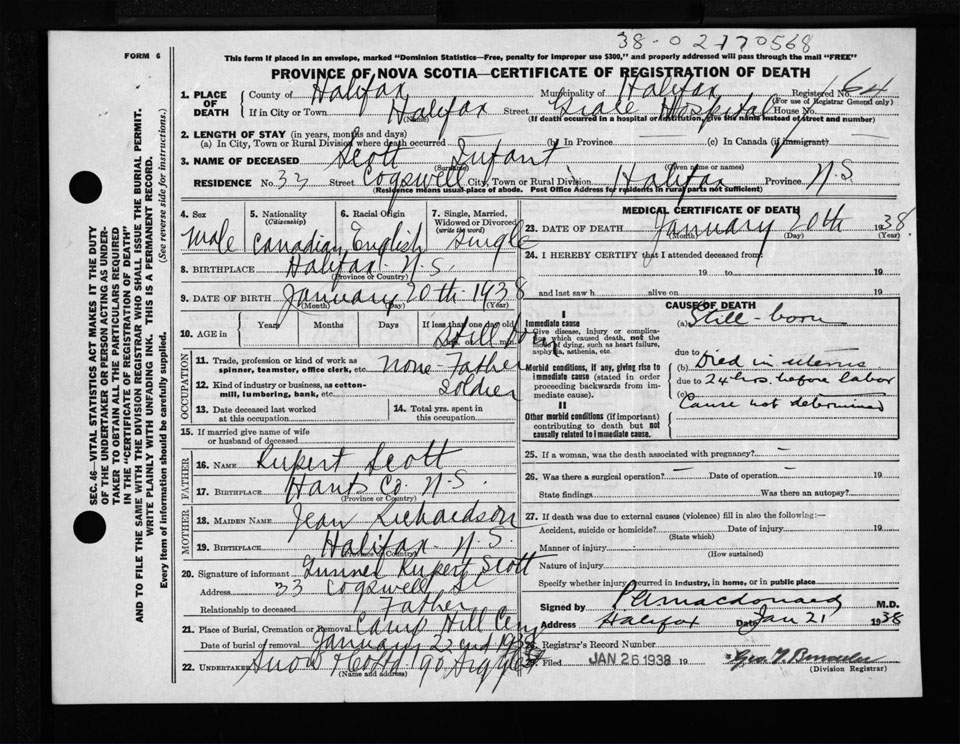 38-02-170568
FORM 6
This form if placed in an envelope, marked "Dominion Statistics—Free, penalty for improper use $300," and properly addressed will pass through the mail "FREE"
PROVINCE OF NOVA SCOTIA—CERTIFICATE OF REGISTRATION OF DEATH
1. PLACE OF DEATH County of Halifax Municipality of Halifax Registered No. 64
(For use of Registrar General only)
If in City or Town Halifax Street Grace Hospital House No.
(Name) (If death occurred in a hospital or institution, give the name instead of street and number)
2. LENGTH OF STAY (in years, months and days)
(a) In City, Town or Rural Division where death occurred (b) In Province (c) In Canada (if immigrant)
3. NAME OF DECEASED Scott Infant
(Surname) (Given name or names)
RESIDENCE No. 33 Street Cogswell City, Town or Rural Division Halifax Province N.S.
(Residence means usual place of abode. Post Office Address for residents in rural parts not sufficient)
4. Sex 5. Nationality (Citizenship) 6. Racial Origin 7. Single, Married, Widowed or Divorced (write the word)
Male Canadian English Single
8. BIRTHPLACE Halifax N.S.
(Province or Country)
9. DATE OF BIRTH January 20th 1938
(Month) (Day) (Year)
10. AGE in Years Months Days If less than one day old
Still born
OCCUPATION
11. Trade, profession or kind of work as spinner, teamster, office clerk, etc. None - Father
12. Kind of industry or business, as cotton-mill, lumbering, bank, etc. Soldier
13. Date deceased last worked at this occupation 14. Total yrs. spent in this occupation
15. If married give name of wife or husband of deceased
FATHER
16. NAME Rupert Scott
17. BIRTHPLACE Hants Co. N.S.
(Province or Country)
MOTHER
18. MAIDEN NAME Jean Richardson
19. BIRTHPLACE Halifax N.S.
(Province or Country)
20. Signature of informant Gunner Rupert Scott
Address 33 Cogswell St
Relationship to deceased Father
21. Place of Burial, Cremation or Removal Camp Hill Cem
Date of burial or removal January 22nd 1938
22. UNDERTAKER Snow & Co Ltd 90 Argyle
(Name and address)
MEDICAL CERTIFICATE OF DEATH
23. DATE OF DEATH January 20th 1938
(Month) (Day) (Year)
24. I HEREBY CERTIFY that I attended deceased from:
19 to 19
and last saw h alive on 19
CAUSE OF DEATH
I
Immediate cause (a) Still-born
Give disease, injury or complication which caused death, not the mode of dying, such as heart failure, asphyxia, asthenia, etc.
due to
Morbid conditions, if any, giving rise to immediate cause (stated in order proceeding backwards from immediate cause). (b) Died in uterus
due to 24 hrs. before labor
(c) Cause not determined
II
Other morbid conditions (if important) contributing to death but not causally related to immediate cause.
25. If a woman, was the death associated with pregnancy? —
26. Was there a surgical operation? — Date of operation — 19
State findings Was there an autopsy?
27. If death was due to external causes (violence) fill in also the following:—
Accident, suicide or homicide? Date of injury 19
(State which)
Manner of injury
(How sustained)
Nature of injury
Specify whether injury occurred in industry, in home, or in public place
Signed by P A Macdonald M.D.
Address Halifax Date Jan 21 1938
28. Registrar's Record Number
29. Filed JAN 26 1938 19
(Division Registrar)
SEC. 46—VITAL STATISTICS ACT MAKES IT THE DUTY
OF THE UNDERTAKER OR PERSON ACTING AS UNDER-
TAKER TO OBTAIN ALL THE PARTICULARS REQUIRED
IN THE "CERTIFICATE OF REGISTRATION OF DEATH"
AND TO FILE THE SAME WITH THE DIVISION REGISTRAR WHO SHALL ISSUE THE BURIAL PERMIT.
WRITE PLAINLY WITH UNFADING INK. THIS IS A PERMANENT RECORD.
Every item of information should be carefully supplied. (See reverse side for instructions.)